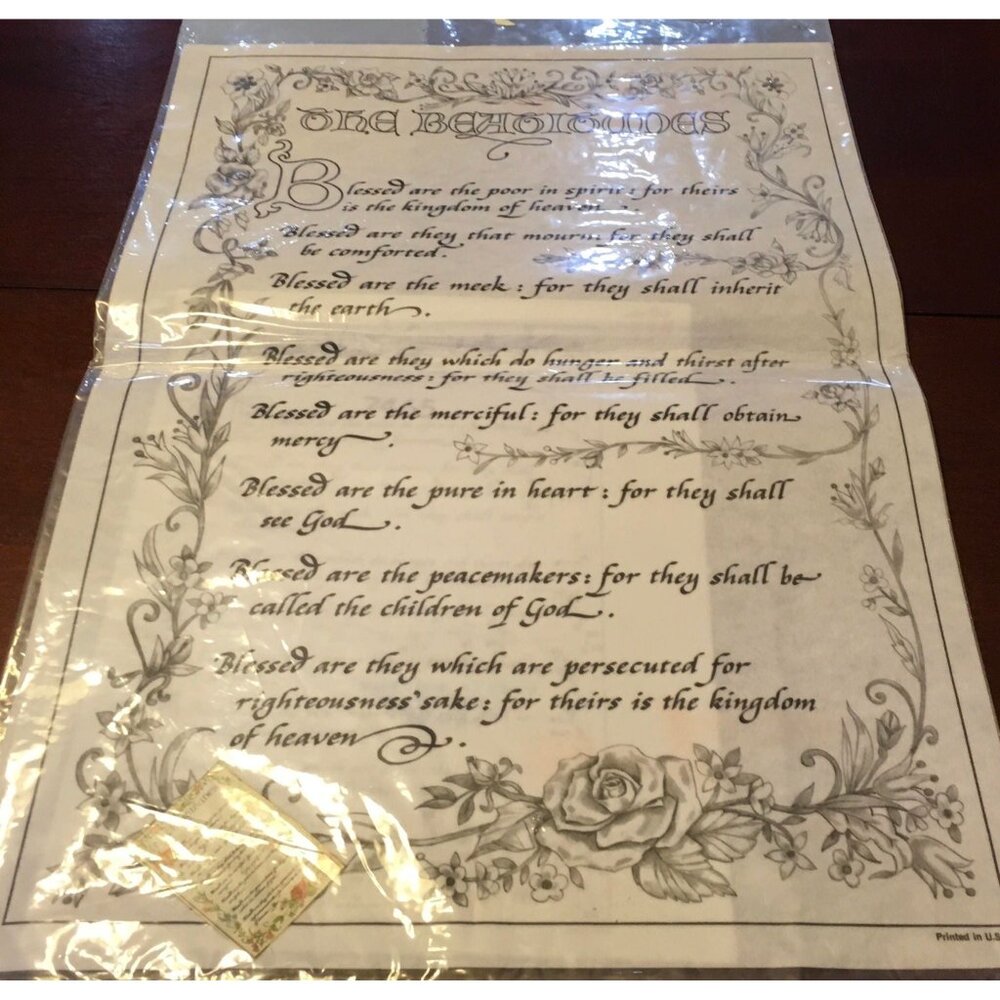 THE BEATITUDES
Blessed are the poor in spirit: for theirs
is the kingdom of heaven.
Blessed are they that mourn: for they shall
be comforted.
Blessed are the meek: for they shall inherit
the earth.
Blessed are they which do hunger and thirst after
righteousness: for they shall be filled.
Blessed are the merciful: for they shall obtain
mercy.
Blessed are the pure in heart: for they shall
see God.
Blessed are the peacemakers: for they shall be
called the children of God.
Blessed are they which are persecuted for
righteousness' sake: for theirs is the kingdom
of heaven.
Printed in U.S